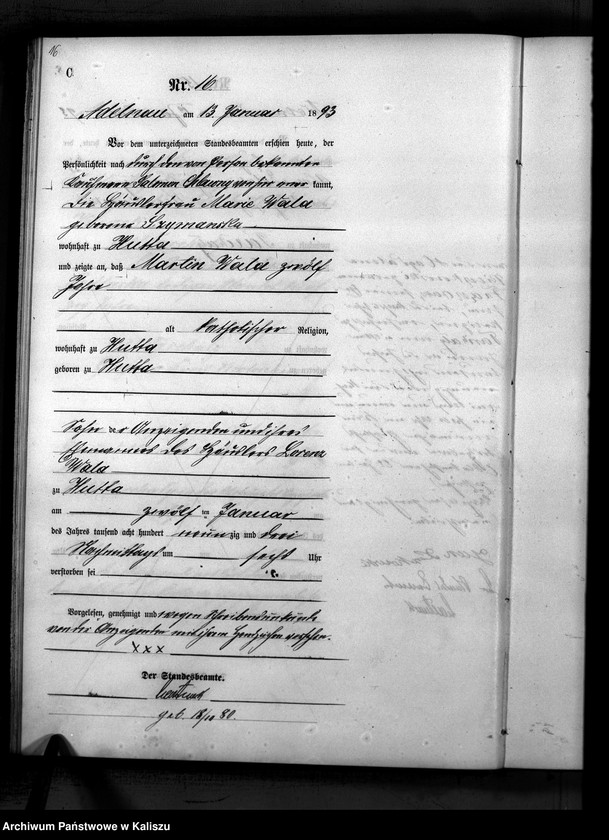 16
C
Nr. 16.
Adelnau am 13. Januar 1893
Vor dem unterzeichneten Standesbeamten erschien heute, der
Persönlichkeit nach durch den von Person bekannten
Kaufmann Salomon anerkannt,
die Häuslerfrau Marie Wala
geborene Szymanska
wohnhaft zu Hutta
und zeigte an, daß Martin Wala zwölf
Jahre
alt katholischer Religion,
wohnhaft zu Hutta
geboren zu Hutta
Sohn der Anzeigenden und ihres
Ehemannes des Häuslers Lorenz
Wala
zu Hutta
am zwölf ten Januar
des Jahres tausend acht hundert neun zig und drei
Nachmittags um sechs Uhr
verstorben sei
Vorgelesen, genehmigt und wegen Schreibensunkunde
von der Anzeigenden mit ihrem Handzeichen versehen.
xxx
Der Standesbeamte.
geb. 18/10 80.
Archiwum Państwowe w Kaliszu